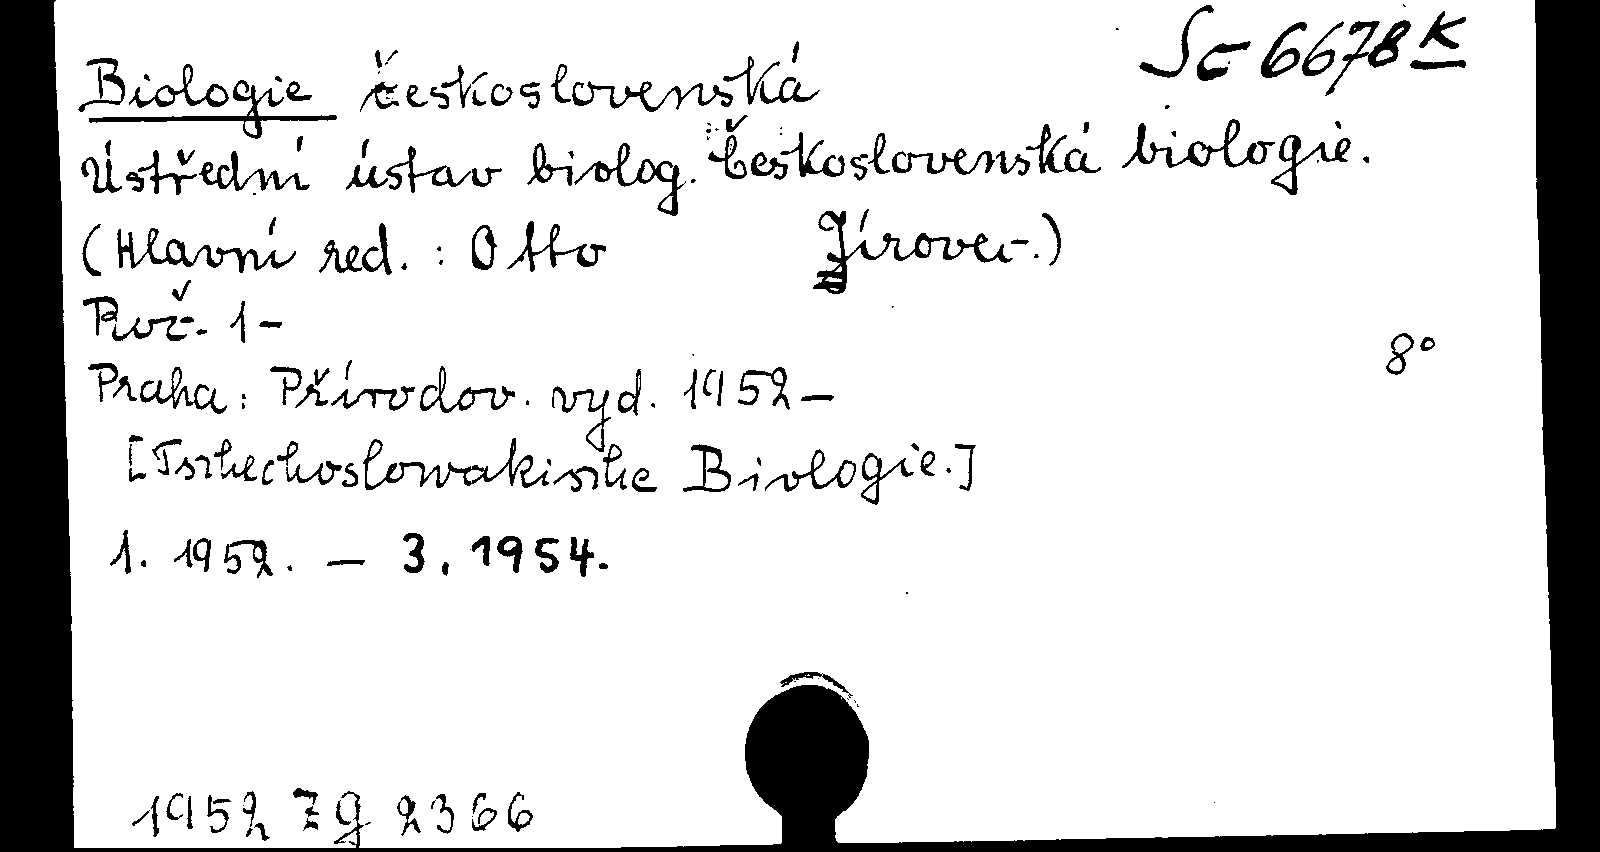 Sc 6678 K
Biologie československá
Ústřední ústav biolog. Československá biologie.
(Hlavní red. : Otto Jírovec.)
Roč. 1-
8°
Praha: Přírodov. vyd. 1952-
[Tschechoslowakische Biologie.]
1. 1952. - 3. 1954.
1952 Zg 2366